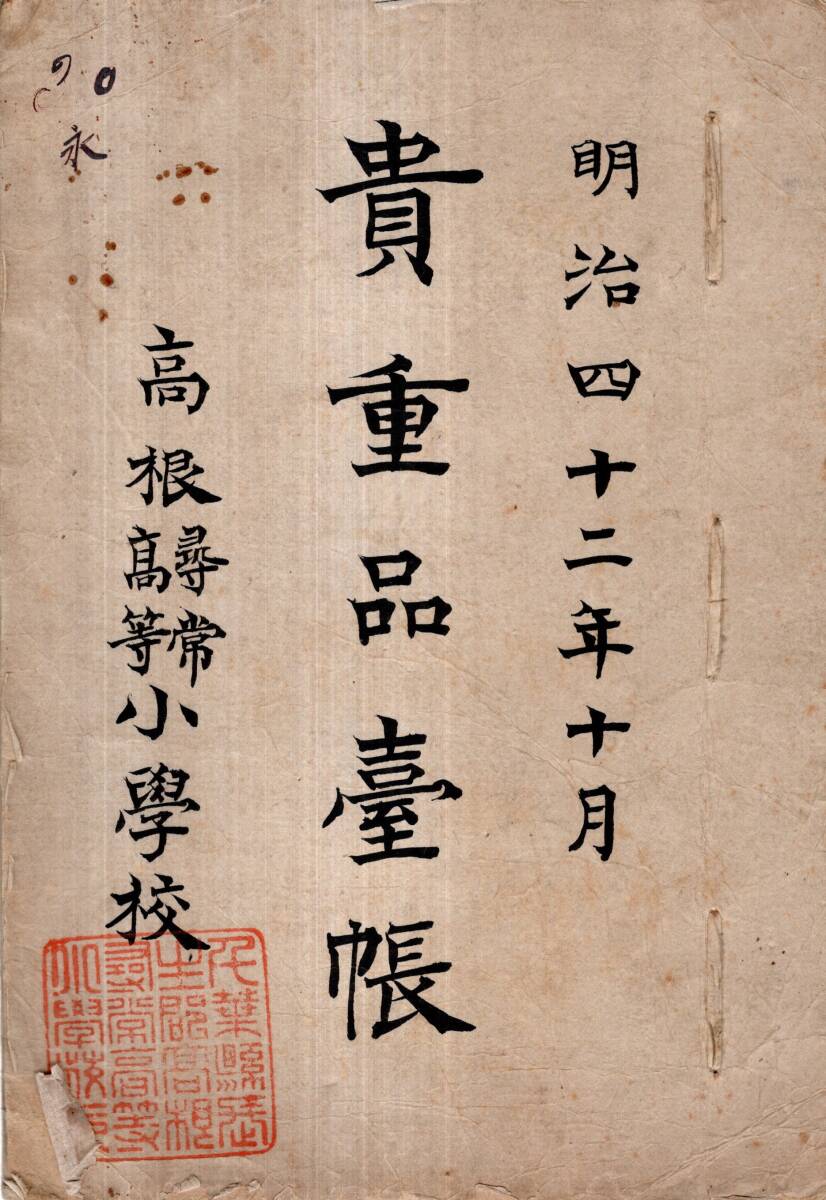 明治四十二年十月
貴重品臺帳
高根尋常高等小學校
永
千葉縣長
生郡高根
尋常高等
小學校